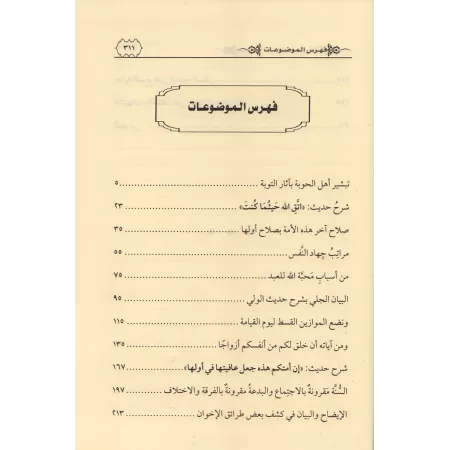 فهرس الموضوعات ٣١١
فهرس الموضوعات
تبشير أهل الحوبة بآثار التوبة ........ ٥
شرحُ حديث: «اتَّقِ الله حَيثُمَا كُنتَ» ........ ٢٣
صلاح آخر هذه الأمة بصلاح أولها ........ ٣٥
مراتِبُ جِهاد النَّفس ........ ٥٥
من أسبابِ مَحبَّة الله للعبد ........ ٧٥
البيان الجلي بشرح حديث الولي ........ ٩٥
ونضع الموازين القسط ليوم القيامة ........ ١١٥
ومن آياته أن خلق لكم من أنفسكم أزواجًا ........ ١٣٥
شرح حديث: «إن أمتكم هذه جعل عافيتها في أولها» ........ ١٦٧
السُّنَّة مَقرونةٌ بالاجتِماع والبدعةُ مقرونةٌ بالفرقة والاختلاف ........ ١٩٧
الإيضاح والبيان في كشف بعض طرائق الإخوان ........ ٢١٣